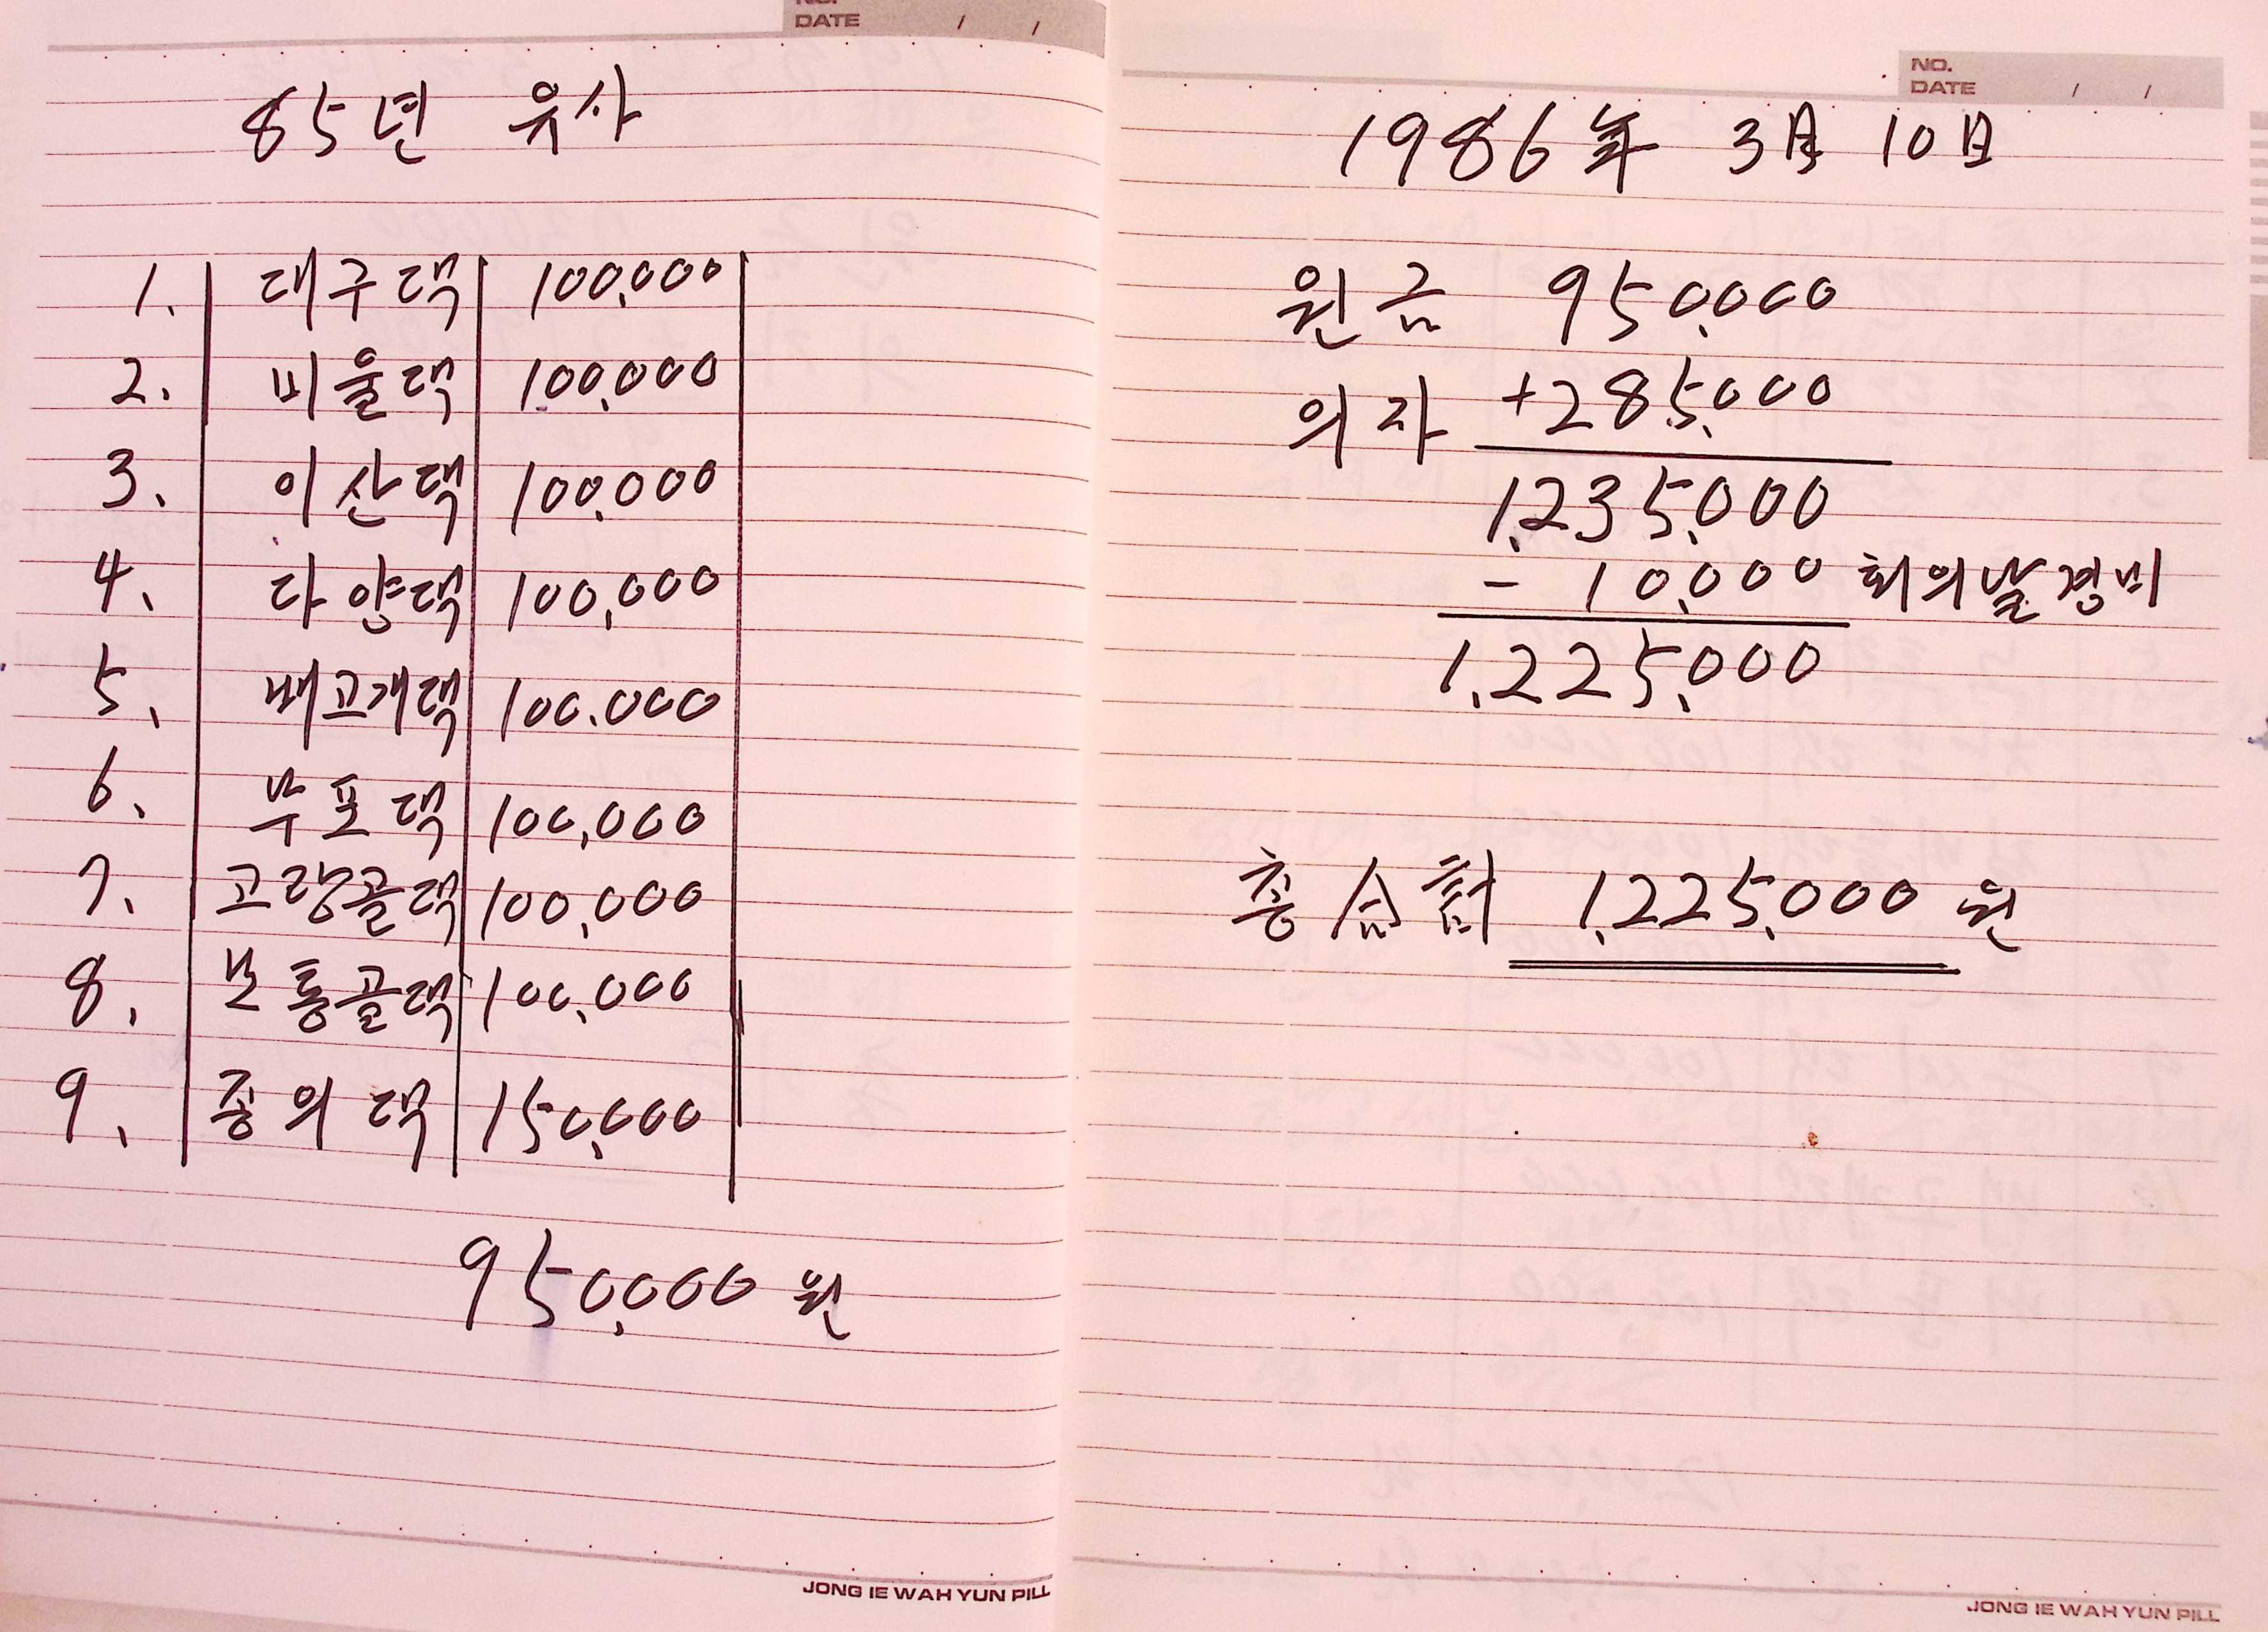 NO.
DATE / /
85년 유사
1. 대구댁 100,000
2. 비율댁 100,000
3. 이산댁 100,000
4. 다양댁 100,000
5. 배고개댁 100,000
6. 부포댁 100,000
7. 고량골댁 100,000
8. 보통골댁 100,000
9. 종의댁 150,000
950,000 원
JONG IE WAH YUN PILL
NO.
DATE / /
1986年 3月 10日
원금 950,000
의자 +285,000
1,235,000
- 10,000 회의날경비
1,225,000
총 1,225,000 원
JONG IE WAH YUN PILL